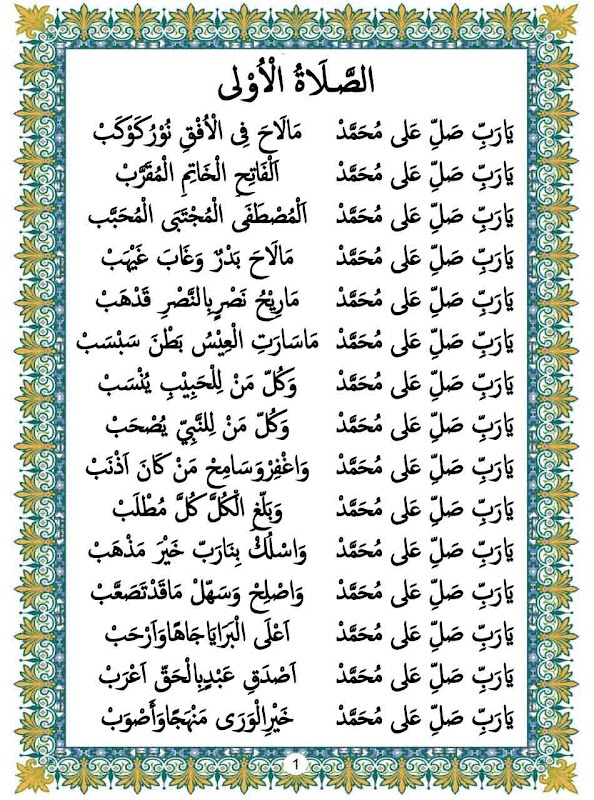 الصَّلَاةُ الْاُوْلى
يَارَبِّ صَلِّ عَلى مُحَمَّدْ مَالَاحَ فِى الْاُفْقِ نُوْرُكَوْكَبْ
يَارَبِّ صَلِّ عَلى مُحَمَّدْ اَلْفَاتِحِ الْخَاتِمِ الْمُقَرَّبْ
يَارَبِّ صَلِّ عَلى مُحَمَّدْ اَلْمُصْطَفَى الْمُجْتَبَى الْمُحَبَّب
يَارَبِّ صَلِّ عَلى مُحَمَّدْ مَالَاحَ بَدْرٌ وَغَابَ غَيْهَبْ
يَارَبِّ صَلِّ عَلى مُحَمَّدْ مَارِيْحُ نَصْرٍبِالنَّصْرِ قَدْهَبْ
يَارَبِّ صَلِّ عَلى مُحَمَّدْ مَاسَارَتِ الْعِيْسُ بَطْنَ سَبْسَبْ
يَارَبِّ صَلِّ عَلى مُحَمَّدْ وَكُلِّ مَنْ لِلْحَبِيْبِ يُنْسَبْ
يَارَبِّ صَلِّ عَلى مُحَمَّدْ وَكُلِّ مَنْ لِلنَّبِيِّ يُصْحَبْ
يَارَبِّ صَلِّ عَلى مُحَمَّدْ وَاغْفِرْوَسَامِحْ مَنْ كَانَ اَذْنَبْ
يَارَبِّ صَلِّ عَلى مُحَمَّدْ وَبَلِّغِ الْكُلَّ كُلَّ مُطْلَبْ
يَارَبِّ صَلِّ عَلى مُحَمَّدْ وَاسْلُكْ بِنَارَبِّ خَيْرَ مَذْهَبْ
يَارَبِّ صَلِّ عَلى مُحَمَّدْ وَاصْلِحْ وَسَهِّلْ مَاقَدْتَصَعَّبْ
يَارَبِّ صَلِّ عَلى مُحَمَّدْ اَعْلَى الْبَرَايَاجَاهًاوَاَرْحَبْ
يَارَبِّ صَلِّ عَلى مُحَمَّدْ اَصْدَقِ عَبْدٍبِالْحَقِّ اَعْرَبْ
يَارَبِّ صَلِّ عَلى مُحَمَّدْ خَيْرِالْوَرَى مَنْهَجًاوَأَصْوَبْ
1